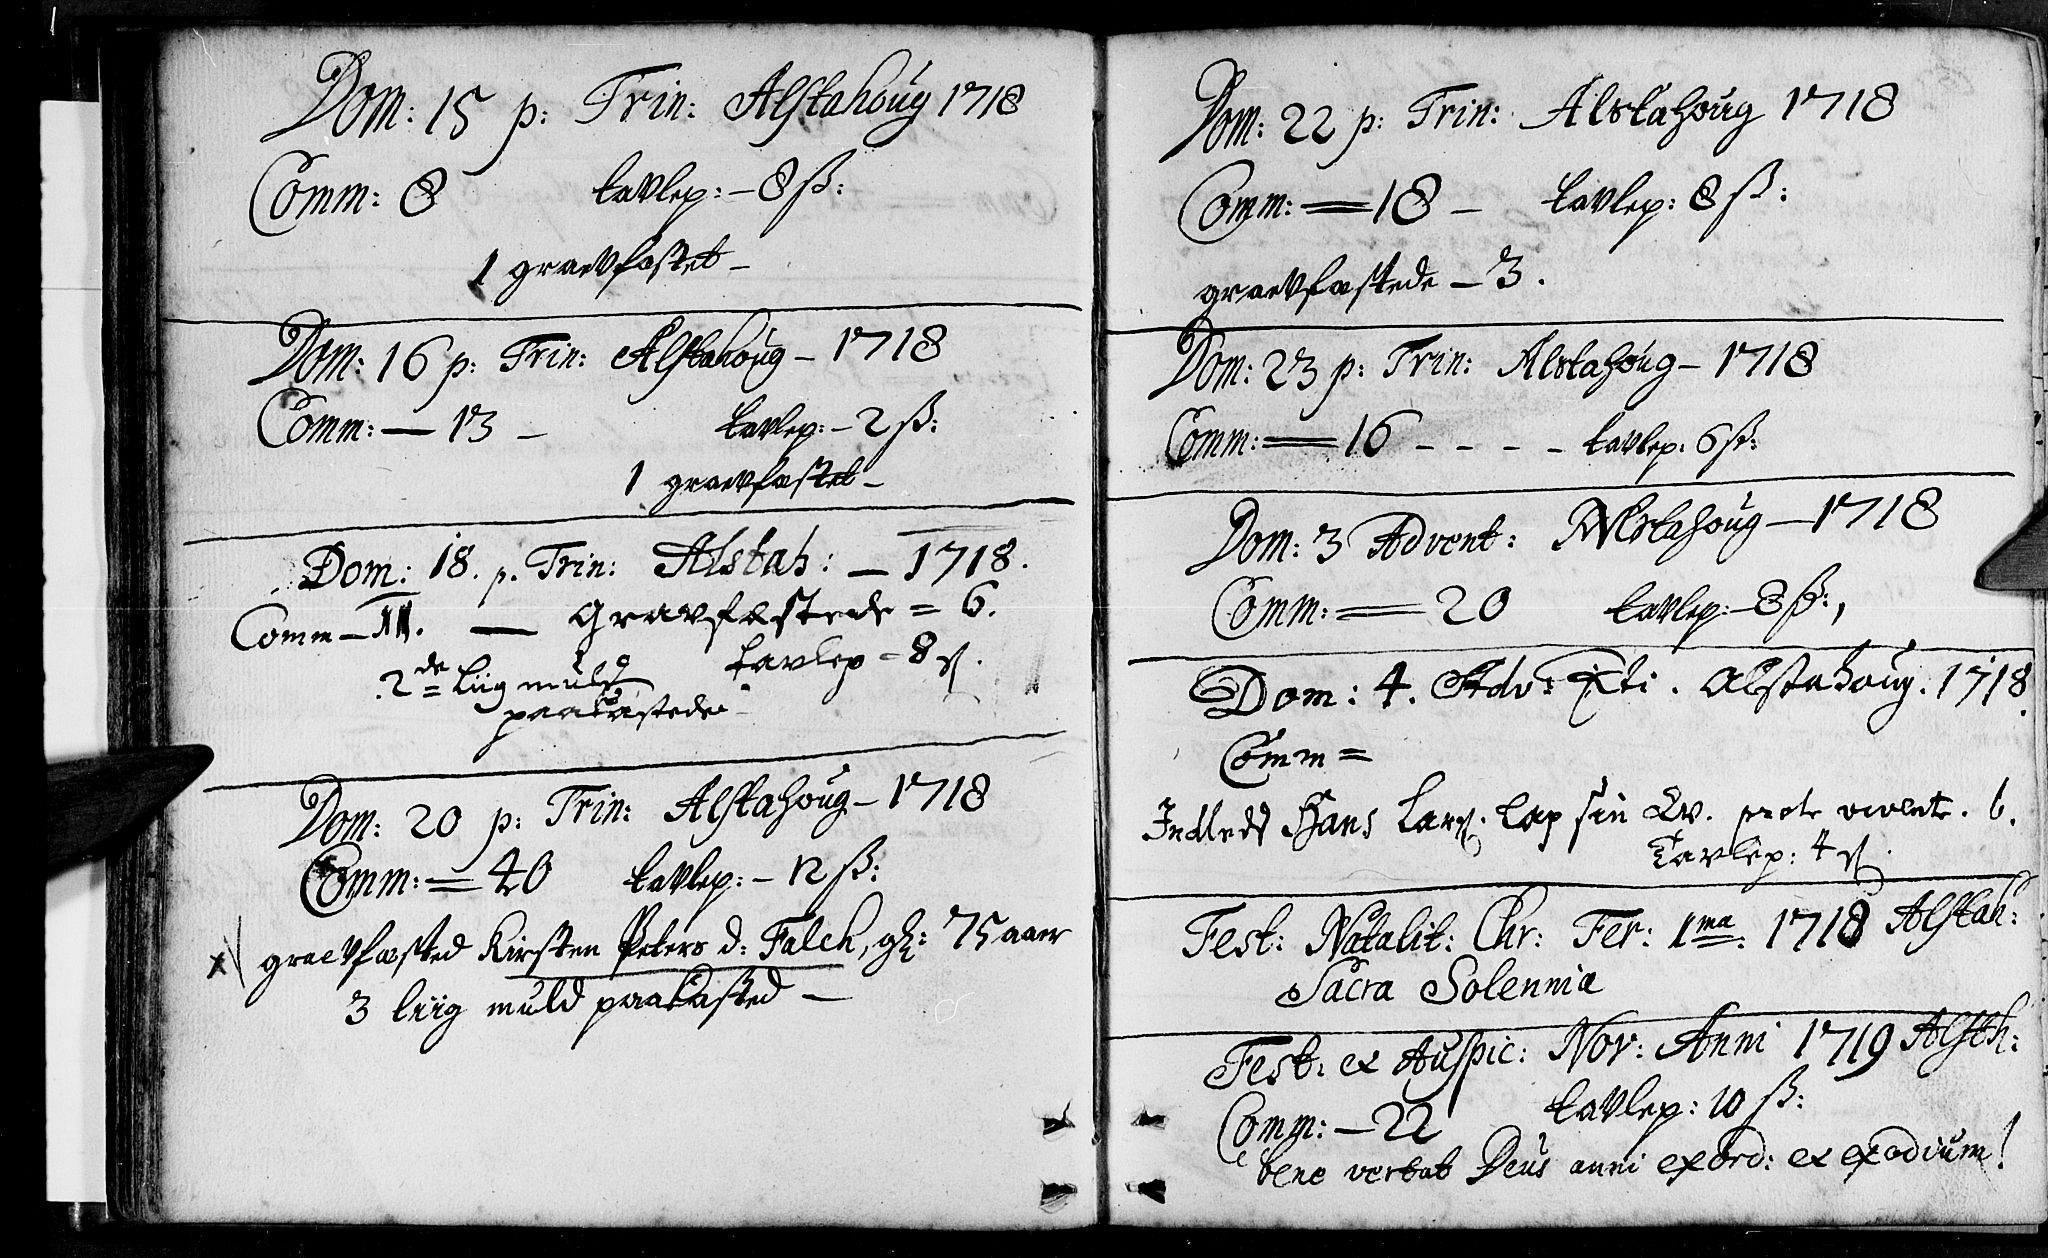 Dom: 15 p: Trin: Alstahoug 1718
Comm: 8 tavlep: – 8 ß:
1 graevfæstet –
Dom: 16 p: Trin: Alstahoug – 1718
Comm: — 13 – tavlep: – 2 ß:
1 graevfæstet –
Dom: 18. p. Trin: Alstah: — 1718.
Comm – — gravfæstede = 6.
2de liig muld tavlep = 8 ß.
paakastede
Dom: 20 p: Trin: Alstahoug – 1718
Comm: = 40 tavlep: – 12 ß:
graevfæsted Kirsten Peters d: Falch, gl: 75 aaer
3 liig muld paakasted —
Dom: 22 p: Trin: Alstahoug 1718
Comm: = 18 – tavlep: 8 ß:
graevfæstede – 3.
Dom: 23 p: Trin: Alstahoug – 1718
Comm: = 16 - - - - tavlep: 6 ß:
Dom: 3 Advent: Alstahoug – 1718
Comm: = 20 tavlep: – 8 ß:,
Dom: 4. Adv: Xti. Alstahoug. 1718.
Comm =
Indledd Hans Lars. Lap sin Qv.
Tavlep: 4 ß.
Fest: Natalit: Chr: Fer: 1ma. 1718 Alstah:
Sacra Solennia
Fest: ex Auspic: Nov: Anni 1719 Alsth:
Comm: – 22 tavlep: 10 ß:
bene vertat Deus anni exord: et exodium!